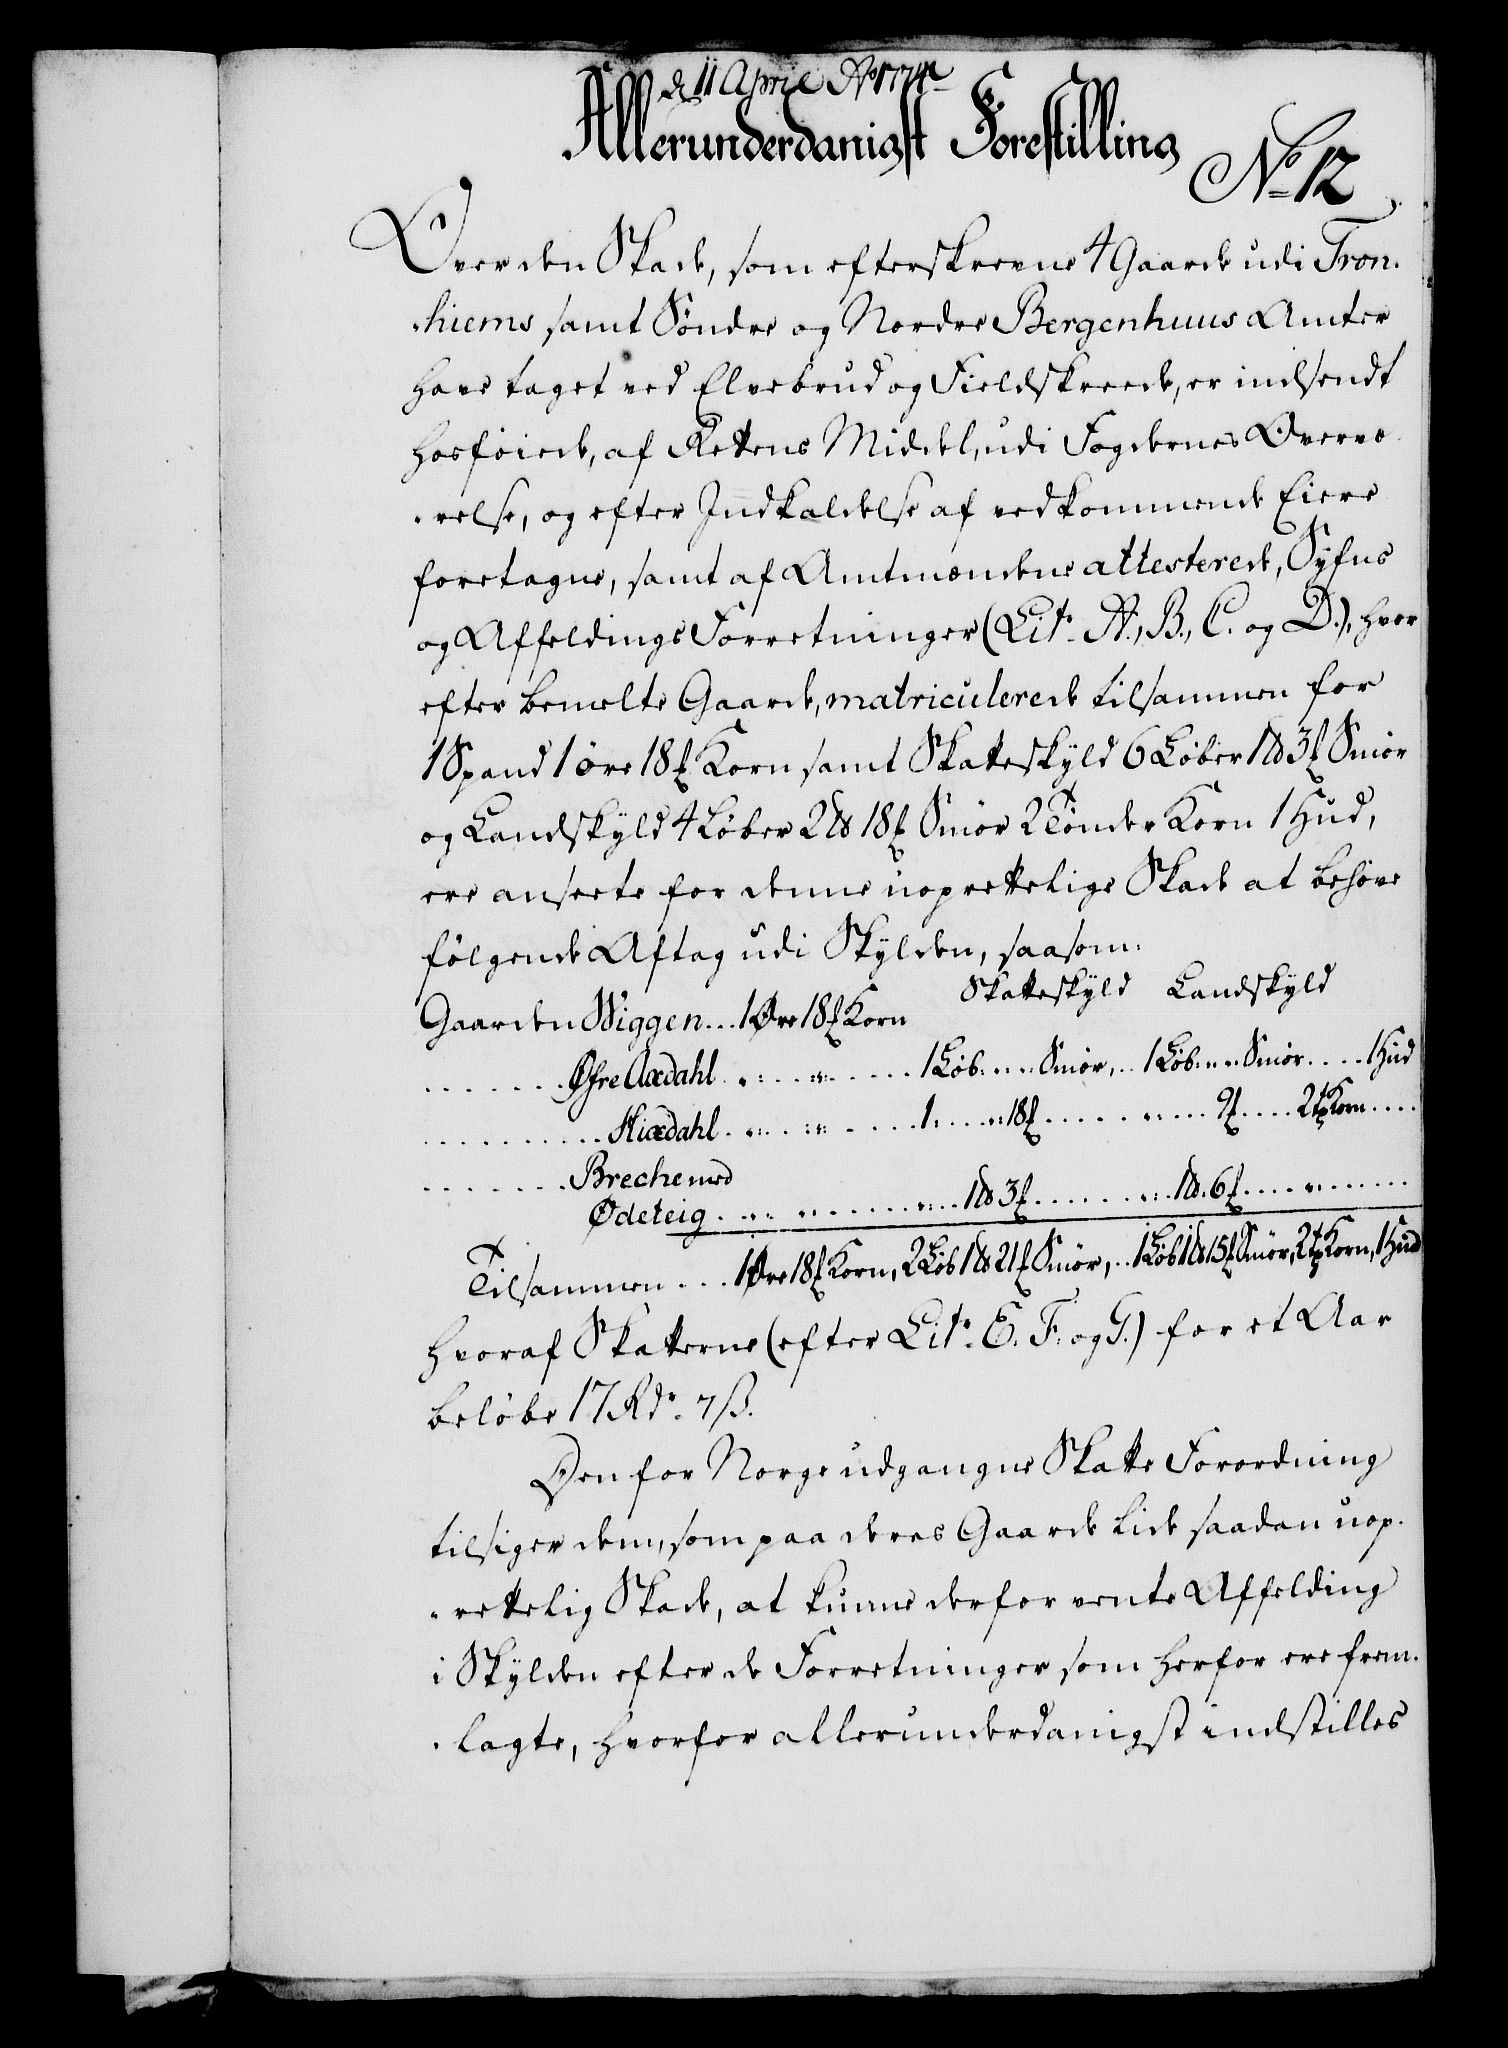 d 11 April Ao 1774
Allerunderdanigst Forestilling
No 12
Over den Skade, som efterskrevne 4 Gaarde udi Tron-
-hiems samt Söndre og Nordre Bergenhuus Amter
have taget ved Elvebrud og Fieldskreede, er indsendt
hosföiede, af Rettens Middel, udi Fogdernes Overvæ-
-relse, og efter Indkaldelse af vedkommende Eiere
foretagne, samt af Amtmændene attesterede, Syfns
og Affældings Forretninger (Litr. A., B., C. og D.), hvor
efter bemelte Gaarde, matriculerede tilsammen for
1 Spand 1 öre 18 ℔ Korn samt Skatteskyld 6 Løber 1 Pd 3 ℔ Smör
og Landskyld 4 Løber 2 Pd 18 ℔ Smör 2 Tönder Korn 1 Hud,
ere anseete for denne uoprettelige Skade at behöve
følgende Aftag udi Skylden, saasom:
Skatteskyld Landskyld
Gaarden Wiggen... 1 Øre 18 ℔ Korn
....... Øfre Aadahl ........ 1 Løb.... Smör,.. 1 Løb.... Smör.... 1 Hud
......... Hiædahl ........ 1.... 18 ℔........ 9 ℔.... 2 tr Korn....
....... Breche med
Ødeteig .......... 1 Pd 3 ℔........ 1 Pd. 6 ℔........
Tilsammen... 1 Øre 18 ℔ Korn, 2 Løb 1 Pd 21 ℔ Smör,.. 1 Løb 1 Pd 15 ℔ Smör, 2 tr Korn, 1 Hud
hvoraf Skatterne (efter Litr. E. F. og G.) for et Aar
beløbe 17 Rdr. 7 ß.
Den for Norge udgangne Skatte Forordning
tilsiger dem, som paa deres Gaarde lide saadan uop-
-rettelig Skade, at kunne derfor vente Affelding
i Skylden efter de Forretninger som herfor ere frem-
-lagte, hvorfor allerunderdanigst indstilles